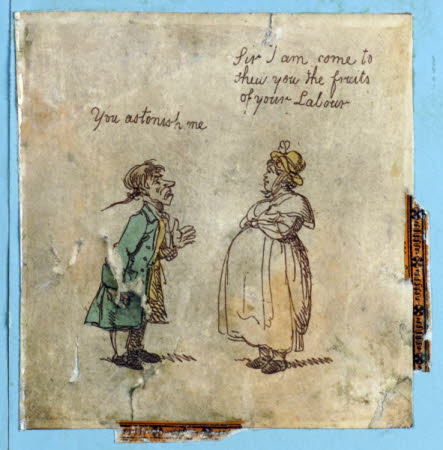 Sir I am come to
shew you the fruits
of your Labour
You astonish me